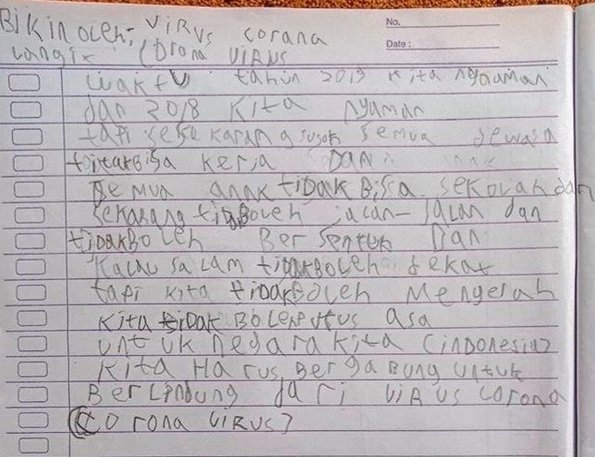 BIKIN OLEH: VIRUS corona
No.
Langix CORONA VIRUS
Date :
waktu tahun 2019 kita nyaman
dan 2018 kita nyaman
tapi sekarang susah semua dewasa
tidakbisa kerja DAN
semua anak tiDak Bisa sekolah dan
sekarang tidboleh jalan-jalan dan
tiDakBoleh Bersentuk Dan
kalau salam tiDakBoLeh dekat
tapi kita tiDakBoleh Mengerah
kita tiDak BolehPutus asa
untuk negara kita (inDonesia)
kita Harus BergaBung untuk
BerLindung dari VIRUS corona
(Corona VIRUS)